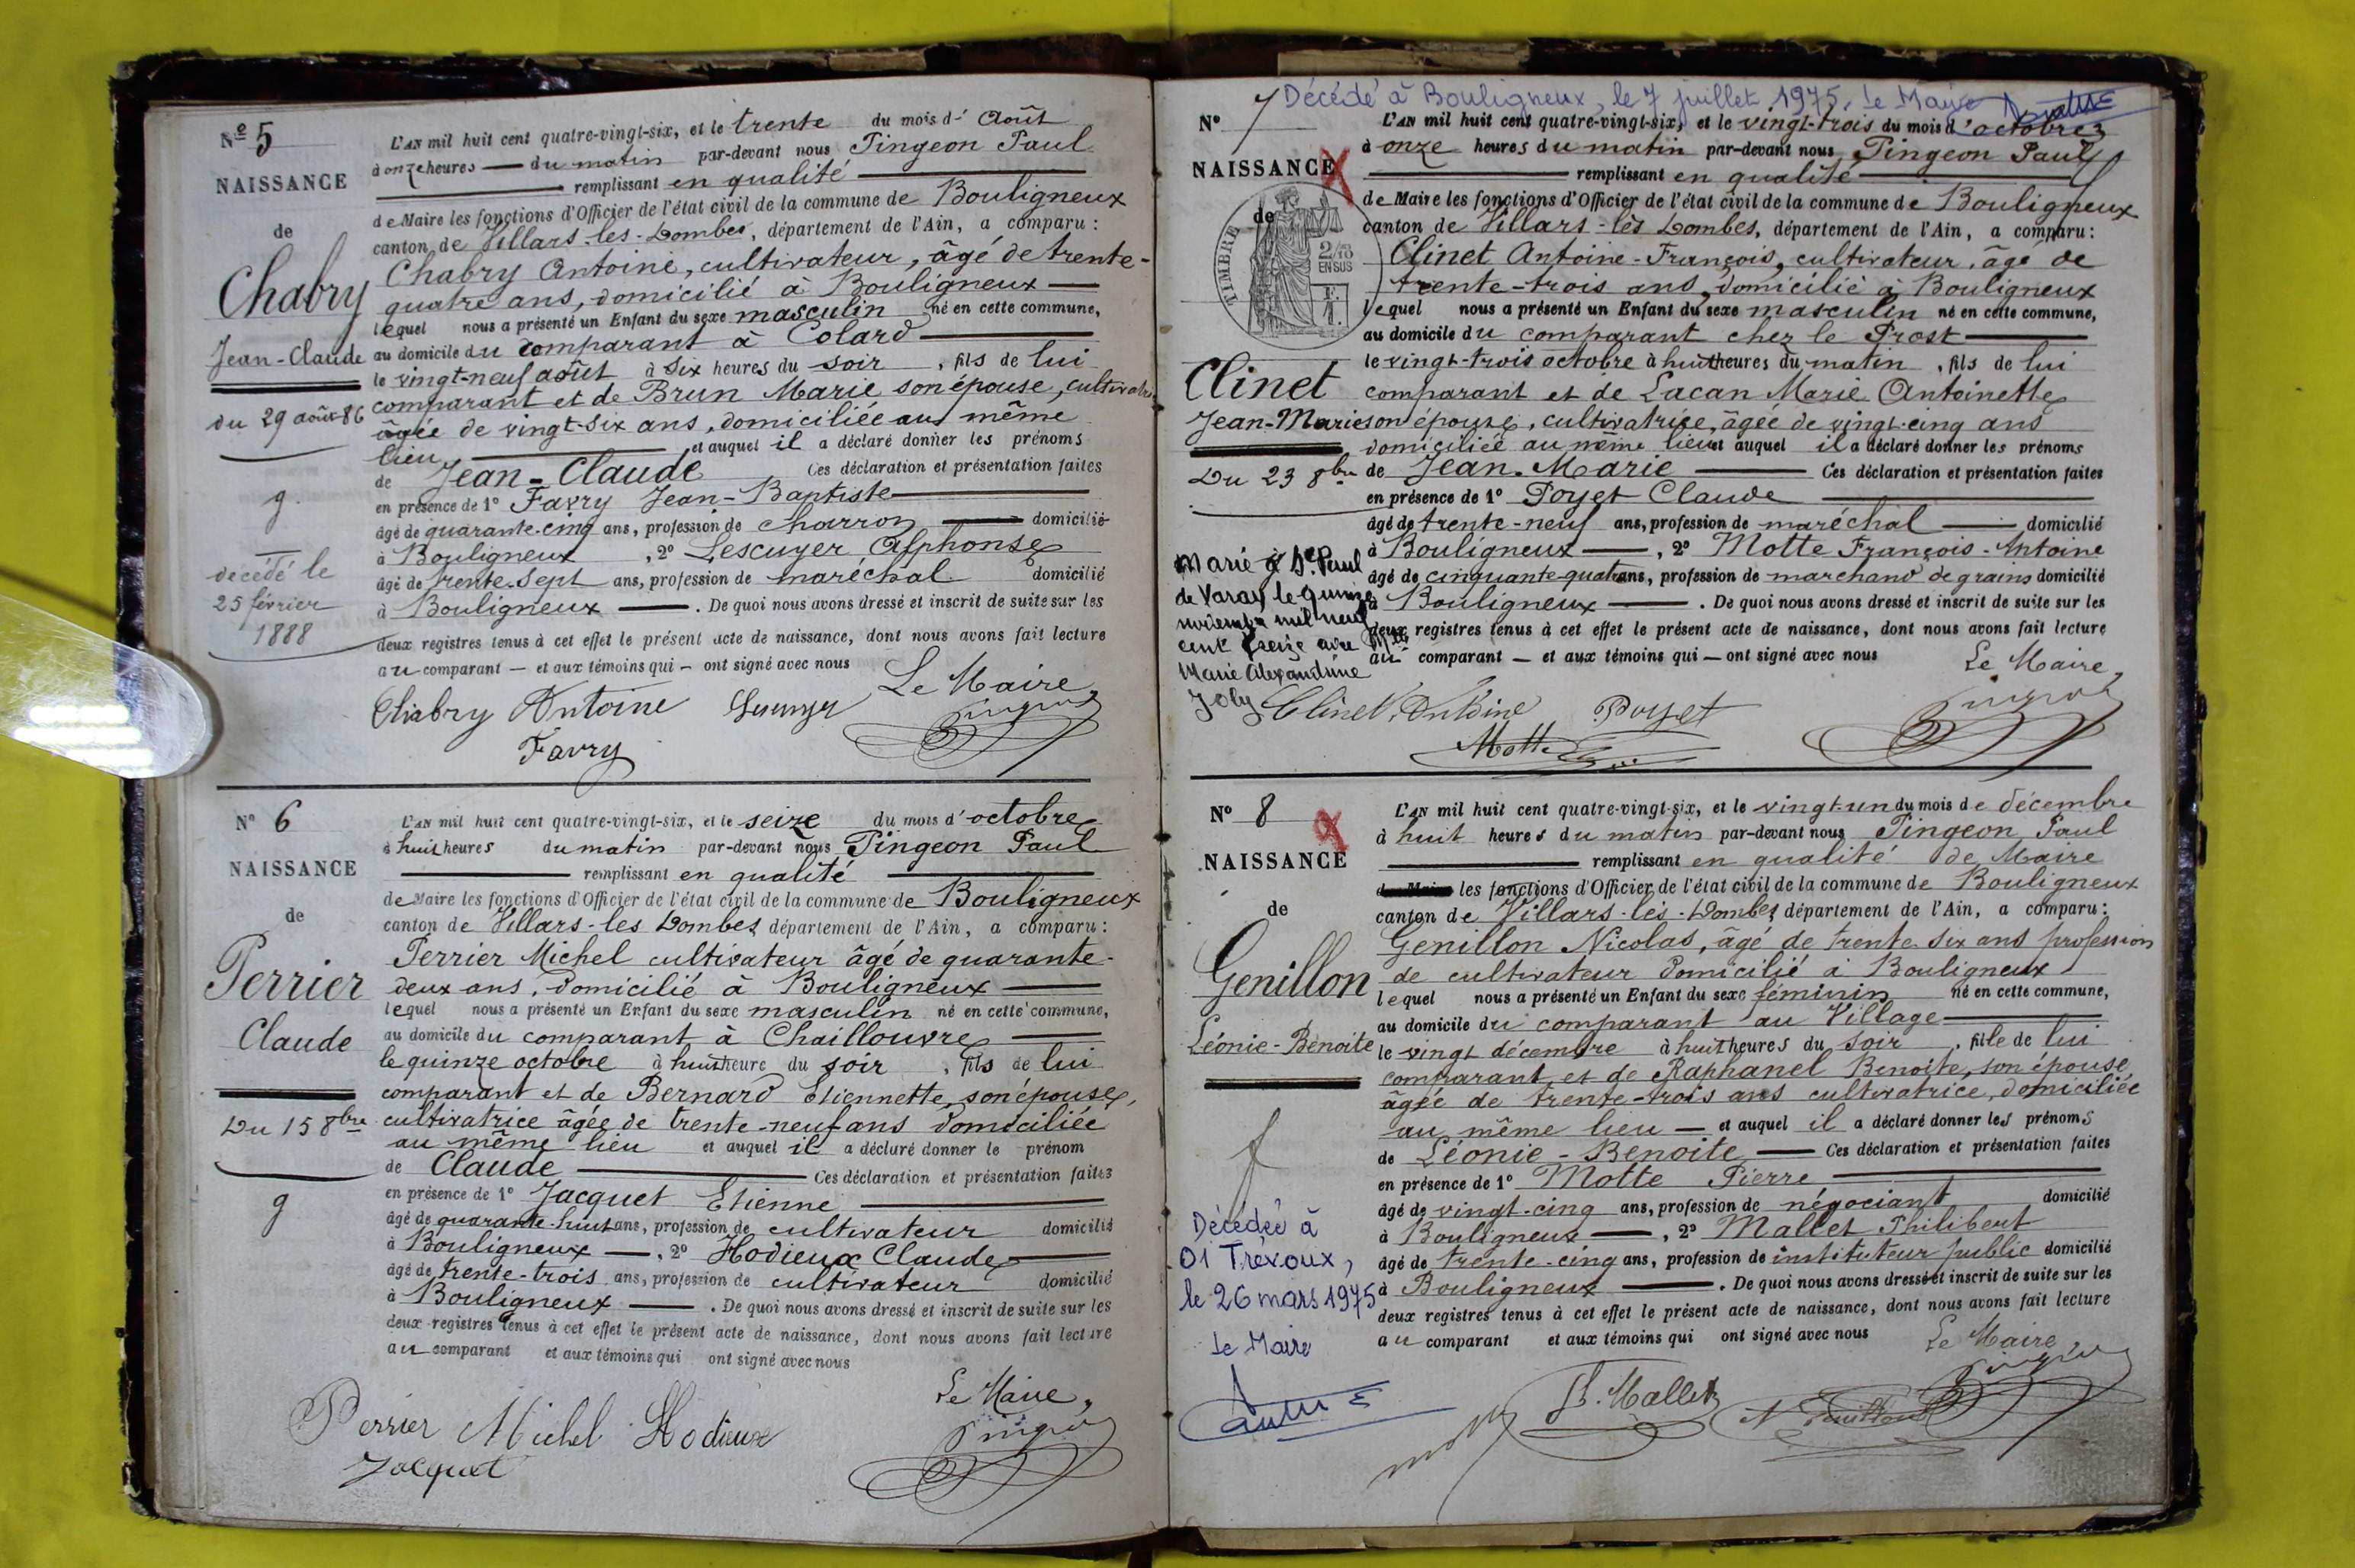 Nº 5
NAISSANCE
de
Chabry
Jean-Claude
du 29 août 86
g.
décédé le
25 février
1888
L'AN mil huit cent quatre-vingt-six, et le trente du mois d' Août
à onze heures — du matin par-devant nous Pingeon Paul
remplissant en qualité
de Maire les fonctions d'Officier de l'état civil de la commune de Bouligneux
canton de Villars-les-Dombes, département de l'Ain, a comparu :
Chabry Antoine, cultivateur, âgé de trente-
quatre ans, domicilié à Bouligneux —
lequel nous a présenté un Enfant du sexe masculin né en cette commune,
au domicile du comparant à Colard
le vingt-neuf août à six heures du soir , fils de lui
comparant et de Brun Marie son épouse, cultivatrice
âgée de vingt-six ans, domiciliée au même
lieu et auquel il a déclaré donner les prénoms
de Jean-Claude Ces déclaration et présentation faites
en présence de 1º Favry Jean-Baptiste
âgé de quarante-cinq ans, profession de charron — domicilié
à Bouligneux , 2º Lescuyer Alphonse
âgé de trente-sept ans, profession de maréchal domicilié
à Bouligneux — . De quoi nous avons dressé et inscrit de suite sur les
deux registres tenus à cet effet le présent acte de naissance, dont nous avons fait lecture
au comparant — et aux témoins qui — ont signé avec nous
Le Maire
Chabry Antoine Lescuyer Pingeon
Favry
Nº 6
NAISSANCE
de
Perrier
Claude
Du 15 8bre
g
L'AN mil huit cent quatre-vingt-six, et le seize du mois d'octobre
à huit heures du matin par-devant nous Pingeon Paul
remplissant en qualité
de Maire les fonctions d'Officier de l'état civil de la commune de Bouligneux
canton de Villars-les-Dombes département de l'Ain, a comparu :
Perrier Michel cultivateur âgé de quarante-
deux ans, domicilié à Bouligneux —
lequel nous a présenté un Enfant du sexe masculin né en cette commune,
au domicile du comparant à Chaillouvre
le quinze octobre à huit heure du soir , fils de lui
comparant et de Bernard Etiennette, son épouse,
cultivatrice âgée de trente-neuf ans domiciliée
au même lieu et auquel il a déclaré donner le prénom
de Claude Ces déclaration et présentation faites
en présence de 1º Jacquet Etienne
âgé de quarante-huit ans, profession de cultivateur domicilié
à Bouligneux — , 2º Hodieux Claude
âgé de trente-trois ans, profession de cultivateur domicilié
à Bouligneux — . De quoi nous avons dressé et inscrit de suite sur les
deux registres tenus à cet effet le présent acte de naissance, dont nous avons fait lecture
au comparant et aux témoins qui ont signé avec nous
Le Maire,
Perrier Michel Hodieux Pingeon
Jacquet
Décédé à Bouligneux, le 7 juillet 1975. Le Maire
Nº 7
NAISSANCE
de
TIMBRE
2/10
EN SUS
Clinet
Jean-Marie
Du 23 8bre
Marié à St Paul
de Varax le quinze
novembre mil neuf
cent treize avec Mlle
Marie Alexandrine
Joly
L'AN mil huit cent quatre-vingt-six, et le vingt-trois du mois d'octobre
à onze heures du matin par-devant nous Pingeon Paul
remplissant en qualité
de Maire les fonctions d'Officier de l'état civil de la commune de Bouligneux
canton de Villars-les Dombes, département de l'Ain, a comparu :
Clinet Antoine-François, cultivateur, âgé de
trente-trois ans, domicilié à Bouligneux
lequel nous a présenté un Enfant du sexe masculin né en cette commune,
au domicile du comparant chez le Prost
le vingt-trois octobre à huit heures du matin , fils de lui
comparant et de Lacan Marie Antoinette
son épouse, cultivatrice, âgée de vingt-cinq ans
domiciliée au même lieu et auquel il a déclaré donner les prénoms
de Jean-Marie — Ces déclaration et présentation faites
en présence de 1º Poyet Claude
âgé de trente-neuf ans, profession de maréchal — domicilié
à Bouligneux — , 2º Motte François-Antoine
âgé de cinquante-quatre ans, profession de marchand de grains domicilié
à Bouligneux — . De quoi nous avons dressé et inscrit de suite sur les
deux registres tenus à cet effet le présent acte de naissance, dont nous avons fait lecture
au comparant — et aux témoins qui — ont signé avec nous
Le Maire,
Clinet Antoine Poyet Pingeon
Motte
Nº 8
NAISSANCE
de
Genillon
Léonie-Benoite
f
Décédée à
01 Trévoux,
le 26 mars 1975
Le Maire
L'AN mil huit cent quatre-vingt-six, et le vingt-un du mois de décembre
à huit heures du matin par-devant nous Pingeon Paul
remplissant en qualité de Maire
les fonctions d'Officier de l'état civil de la commune de Bouligneux
canton de Villars-les-Dombes département de l'Ain, a comparu :
Genillon Nicolas, âgé de trente-six ans profession
de cultivateur domicilié à Bouligneux
lequel nous a présenté un Enfant du sexe féminin né en cette commune,
au domicile du comparant au Village
le vingt décembre à huit heures du soir , fille de lui
comparant et de Raphanel Benoite, son épouse
âgée de trente-trois ans cultivatrice, domiciliée
au même lieu — et auquel il a déclaré donner les prénoms
de Léonie-Benoite — Ces déclaration et présentation faites
en présence de 1º Motte Pierre
âgé de vingt-cinq ans, profession de négociant domicilié
à Bouligneux — , 2º Mallet Philibert
âgé de trente-cinq ans, profession de instituteur public domicilié
à Bouligneux — . De quoi nous avons dressé et inscrit de suite sur les
deux registres tenus à cet effet le présent acte de naissance, dont nous avons fait lecture
au comparant et aux témoins qui ont signé avec nous
Le Maire
Ph. Mallet N Genillon Pingeon
Motte